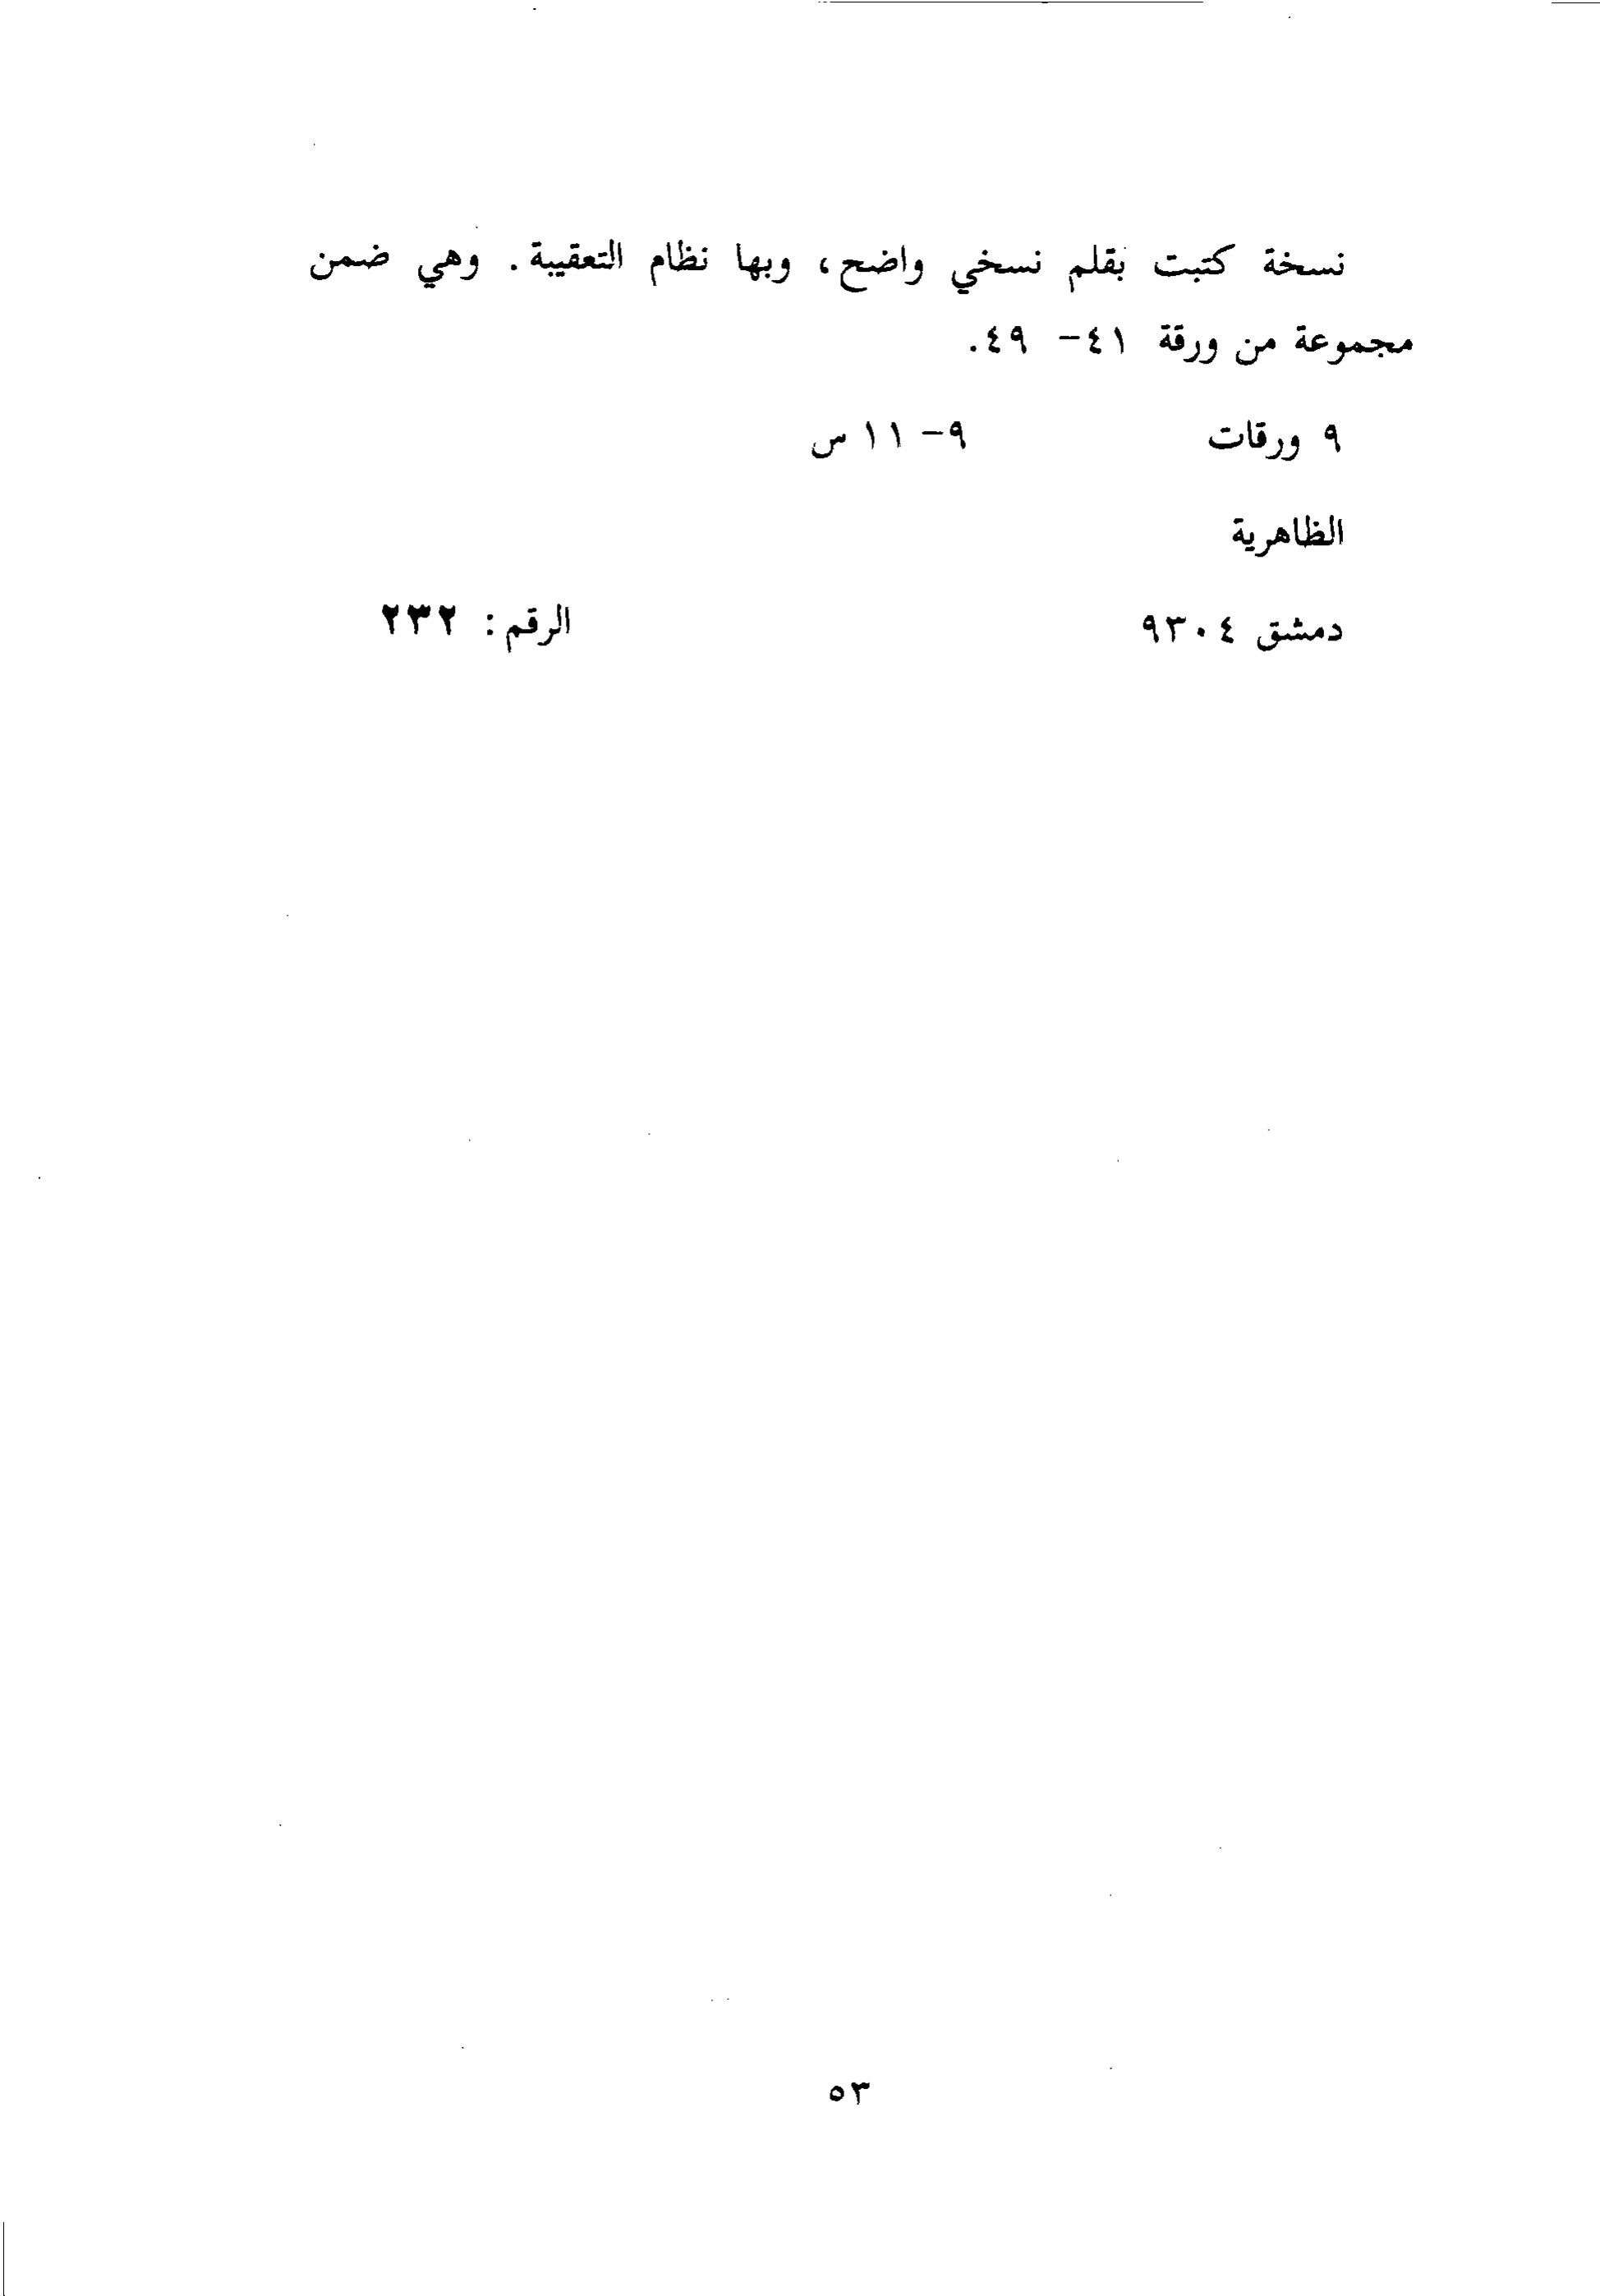 نسخة كتبت بقلم نسخي واضح، وبها نظام التعقيبة. وهي ضمن
مجموعة من ورقة ٤١- ٤٩.
٩ ورقات ٩- ١١ س
الظاهرية
دمشق ٩٣٠٤ الرقم: ٢٣٢
٥٣